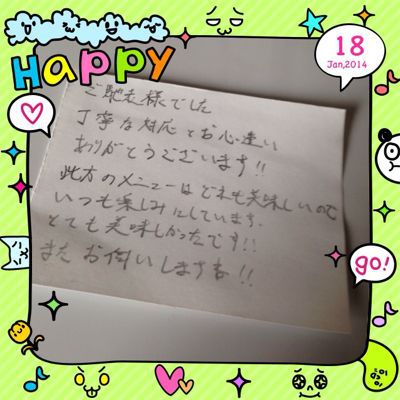 Happy
18
Jan,2014
ご馳走様でした
丁寧な対応とお心遣い
ありがとうございます!!
此方のメニューはどれも美味しいので
いつも楽しみにしています.
とても美味しかったです!!
またお伺いします!!
go!